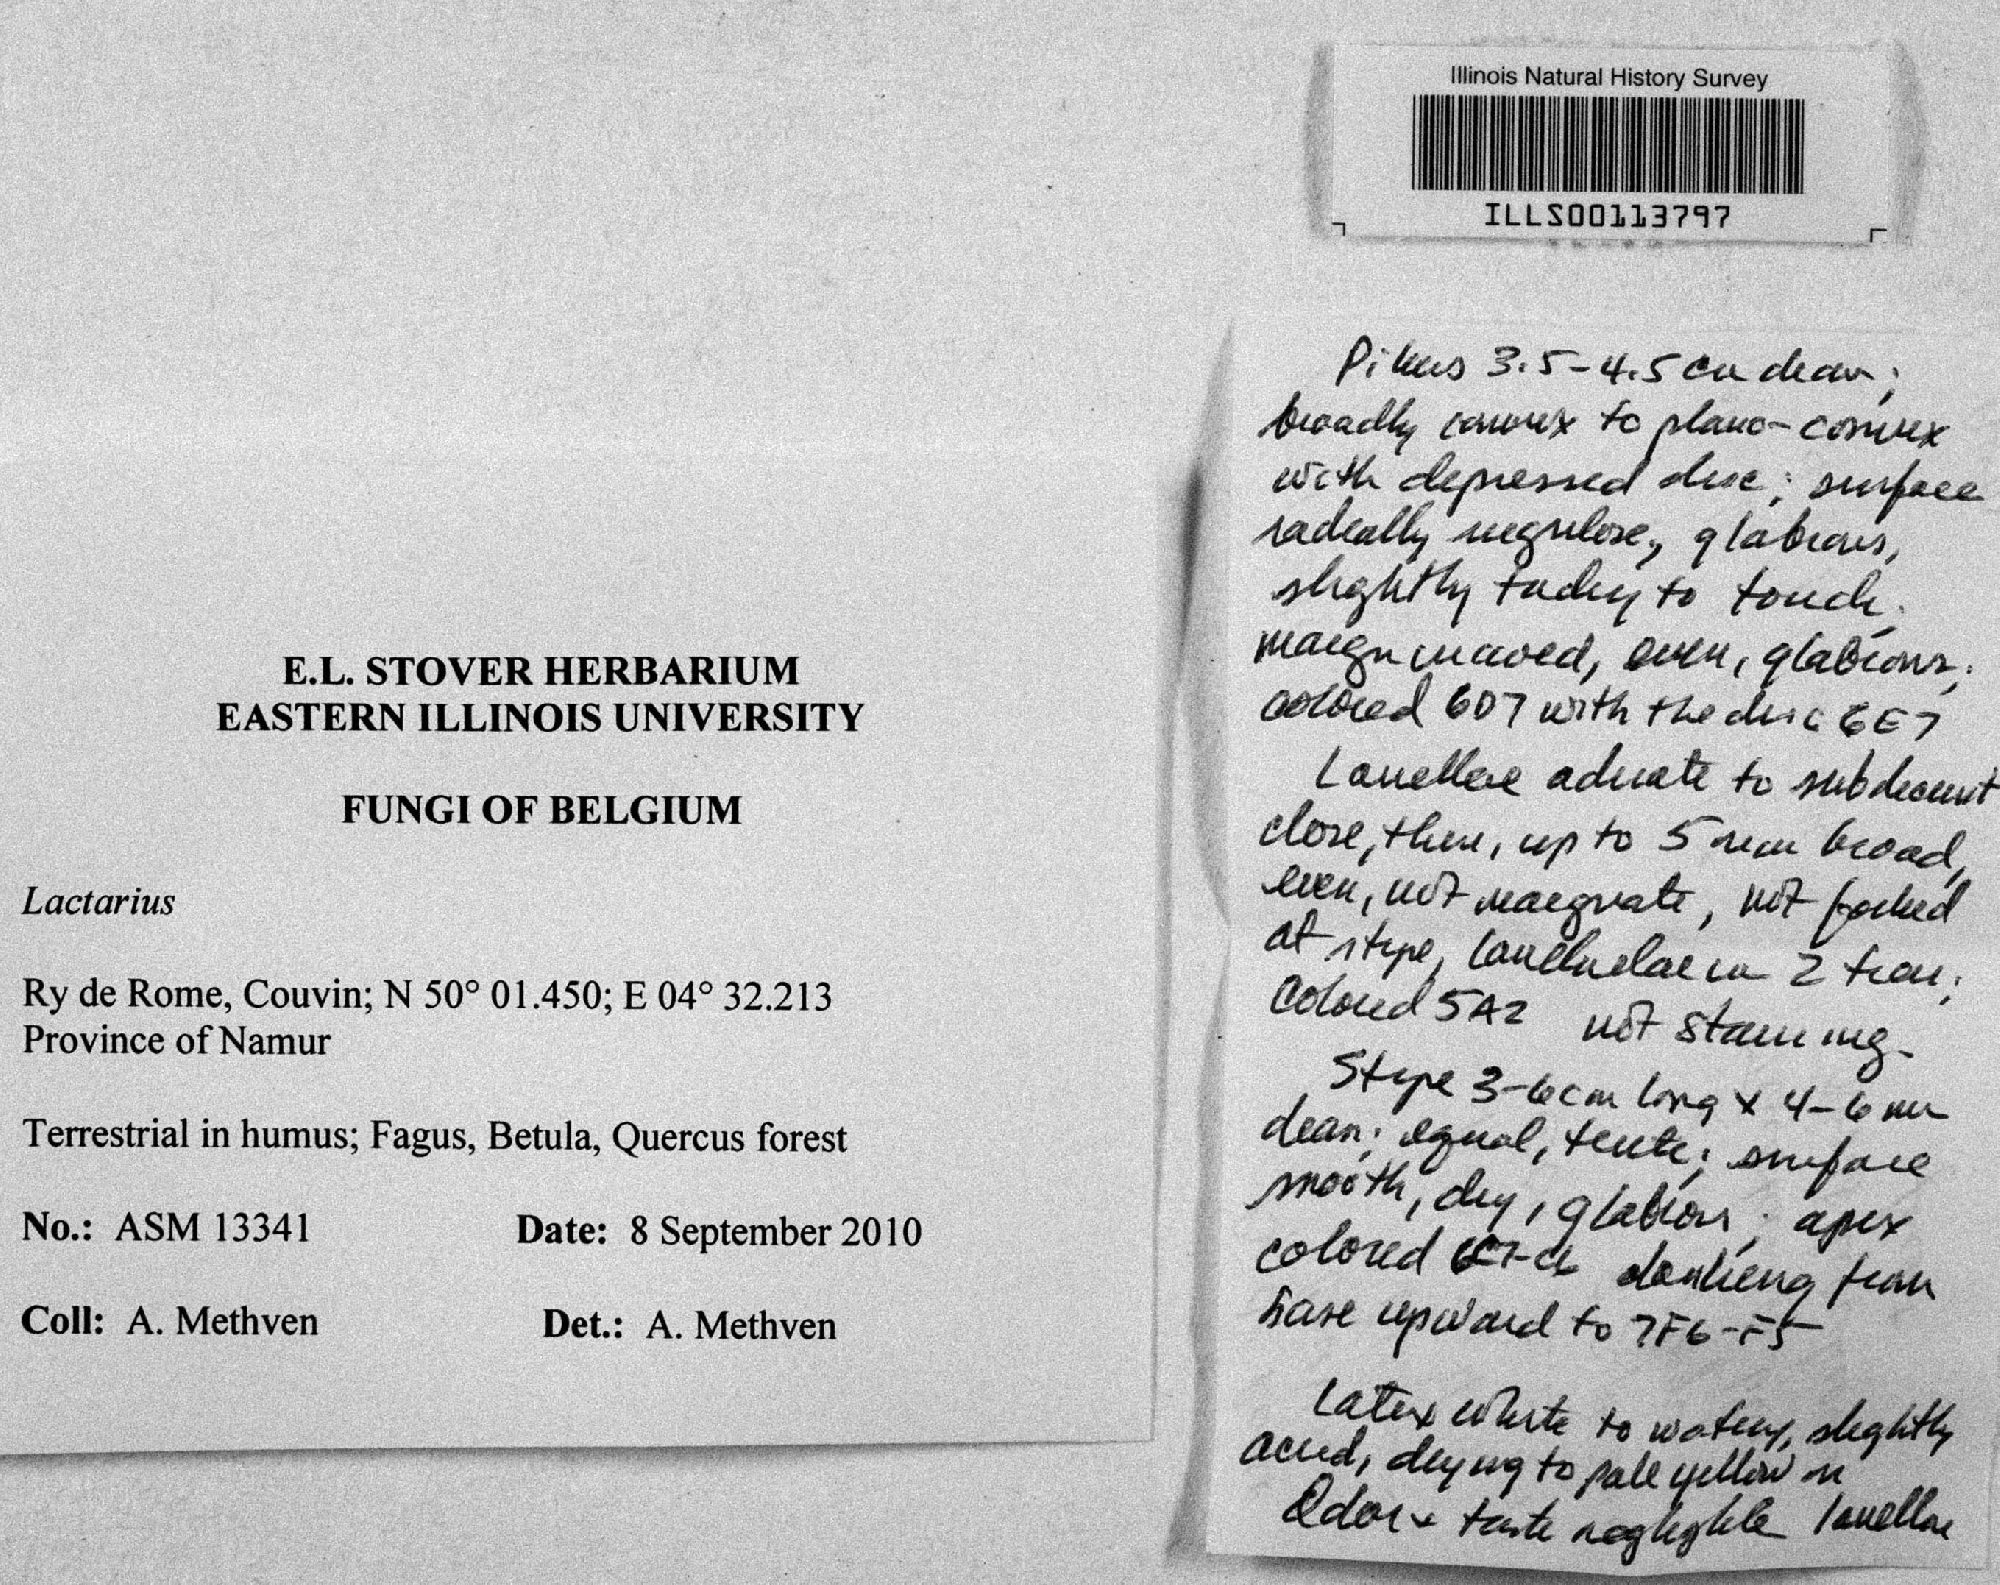 Illinois Natural History Survey
ILLS00113797
E.L. STOVER HERBARIUM
EASTERN ILLINOIS UNIVERSITY
FUNGI OF BELGIUM
Lactarius
Ry de Rome, Couvin; N 50° 01.450; E 04° 32.213
Province of Namur
Terrestrial in humus; Fagus, Betula, Quercus forest
No.: ASM 13341 Date: 8 September 2010
Coll: A. Methven Det.: A. Methven
Pileus 3.5-4.5 cm diam;
broadly convex to plano-convex
with depressed disc; surface
radially rugulose, glabrous,
slightly tacky to touch;
margin incurved, even, glabrous;
colored 6D7 with the disc 6E7
Lamellae adnate to subdecurrent
close, thin, up to 5 mm broad,
even, not marginate, not forked
at stipe, lamellulae in 2 tiers;
colored 5A2 not staining.
Stipe 3-6 cm long x 4-6 mm
diam; equal, terete; surface
smooth, dry, glabrous; apex
colored 6C7-C6 darkening from
base upward to 7F6-F5
Latex white to watery, slightly
acrid, drying to pale yellow on
lamellae
Odor + taste negligible